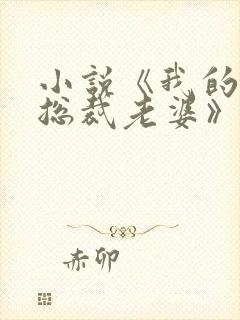 小说《我的
总裁老婆》
赤卯